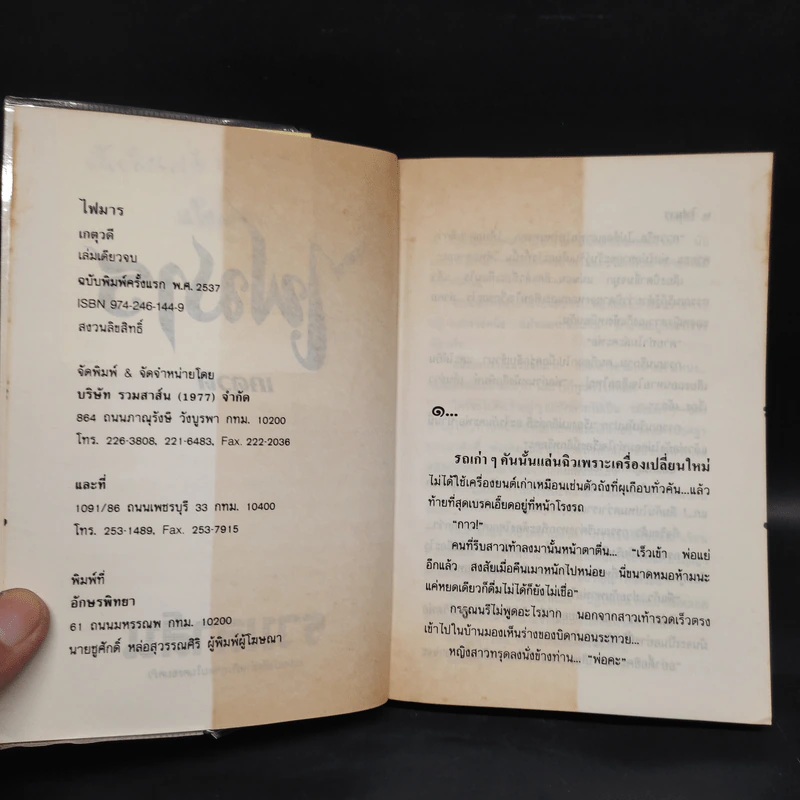 ไฟมาร
เกตุวดี
เล่มเดียวจบ
ฉบับพิมพ์ครั้งแรก พ.ศ. 2537
ISBN 974-246-144-9
สงวนลิขสิทธิ์
จัดพิมพ์ & จัดจำหน่ายโดย
บริษัท รวมสาส์น (1977) จำกัด
864 ถนนภาณุรังษี วังบูรพา กทม. 10200
โทร. 226-3808, 221-6483, Fax. 222-2036
และที่
1091/86 ถนนเพชรบุรี 33 กทม. 10400
โทร. 253-1489, Fax. 253-7915
พิมพ์ที่
อักษรพิทยา
61 ถนนมหรรณพ กทม. 10200
นายชูศักดิ์ หล่อสุวรรณศิริ ผู้พิมพ์ผู้โฆษณา
๑...
รถเก่า ๆ คันนั้นแล่นฉิวเพราะเครื่องเปลี่ยนใหม่
ไม่ได้ใช้เครื่องยนต์เก่าเหมือนเช่นตัวถังที่ผุเกือบทั่วคัน...แล้ว
ท้ายที่สุดเบรคเอี๊ยดอยู่ที่หน้าโรงรถ
“กาว!”
คนที่รีบสาวเท้าลงมานั้นหน้าตาตื่น... “เร็วเข้า พ่อแย่
อีกแล้ว สงสัยเมื่อคืนเมาหนักไปหน่อย นี่ขนาดหมอห้ามนะ
แค่หยดเดียวก็ดื่มไม่ได้ก็ยังไม่เชื่อ”
กรรณนรีไม่พูดอะไรมาก นอกจากสาวเท้ารวดเร็วตรง
เข้าไปในบ้านมองเห็นร่างของบิดานอนระทวย...
หญิงสาวทรุดลงนั่งข้างท่าน... “พ่อคะ”